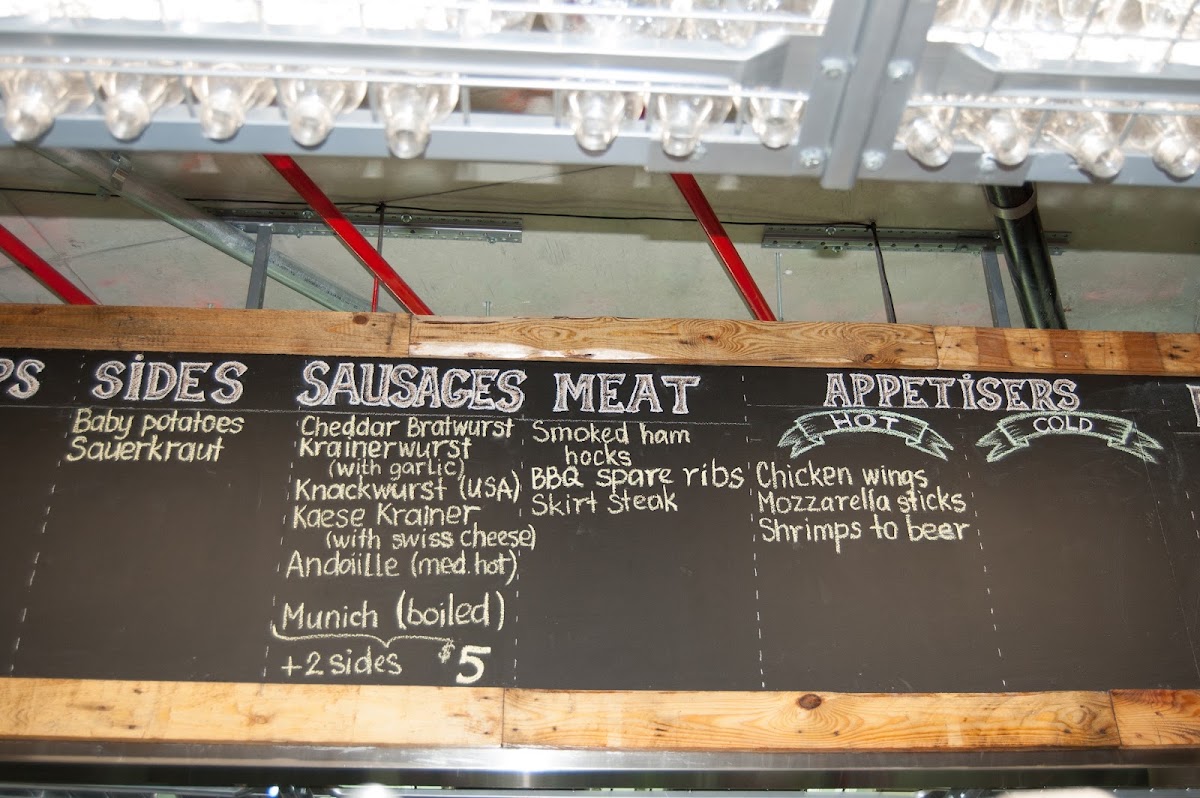 PS
SiDES
Baby potatoes
Sauerkraut
SAUSAGES
Cheddar Bratwurst
Krainerwurst
(with garlic)
Knackwurst (USA)
Kaese Krainer
(with swiss cheese)
Andoiille (med.hot)
Munich (boiled)
+2 sides $5
MEAT
Smoked ham
hocks
BBQ spare ribs
Skirt Steak
APPETiSERS
HOT
Chicken wings
Mozzarella sticks
Shrimps to beer
COLD